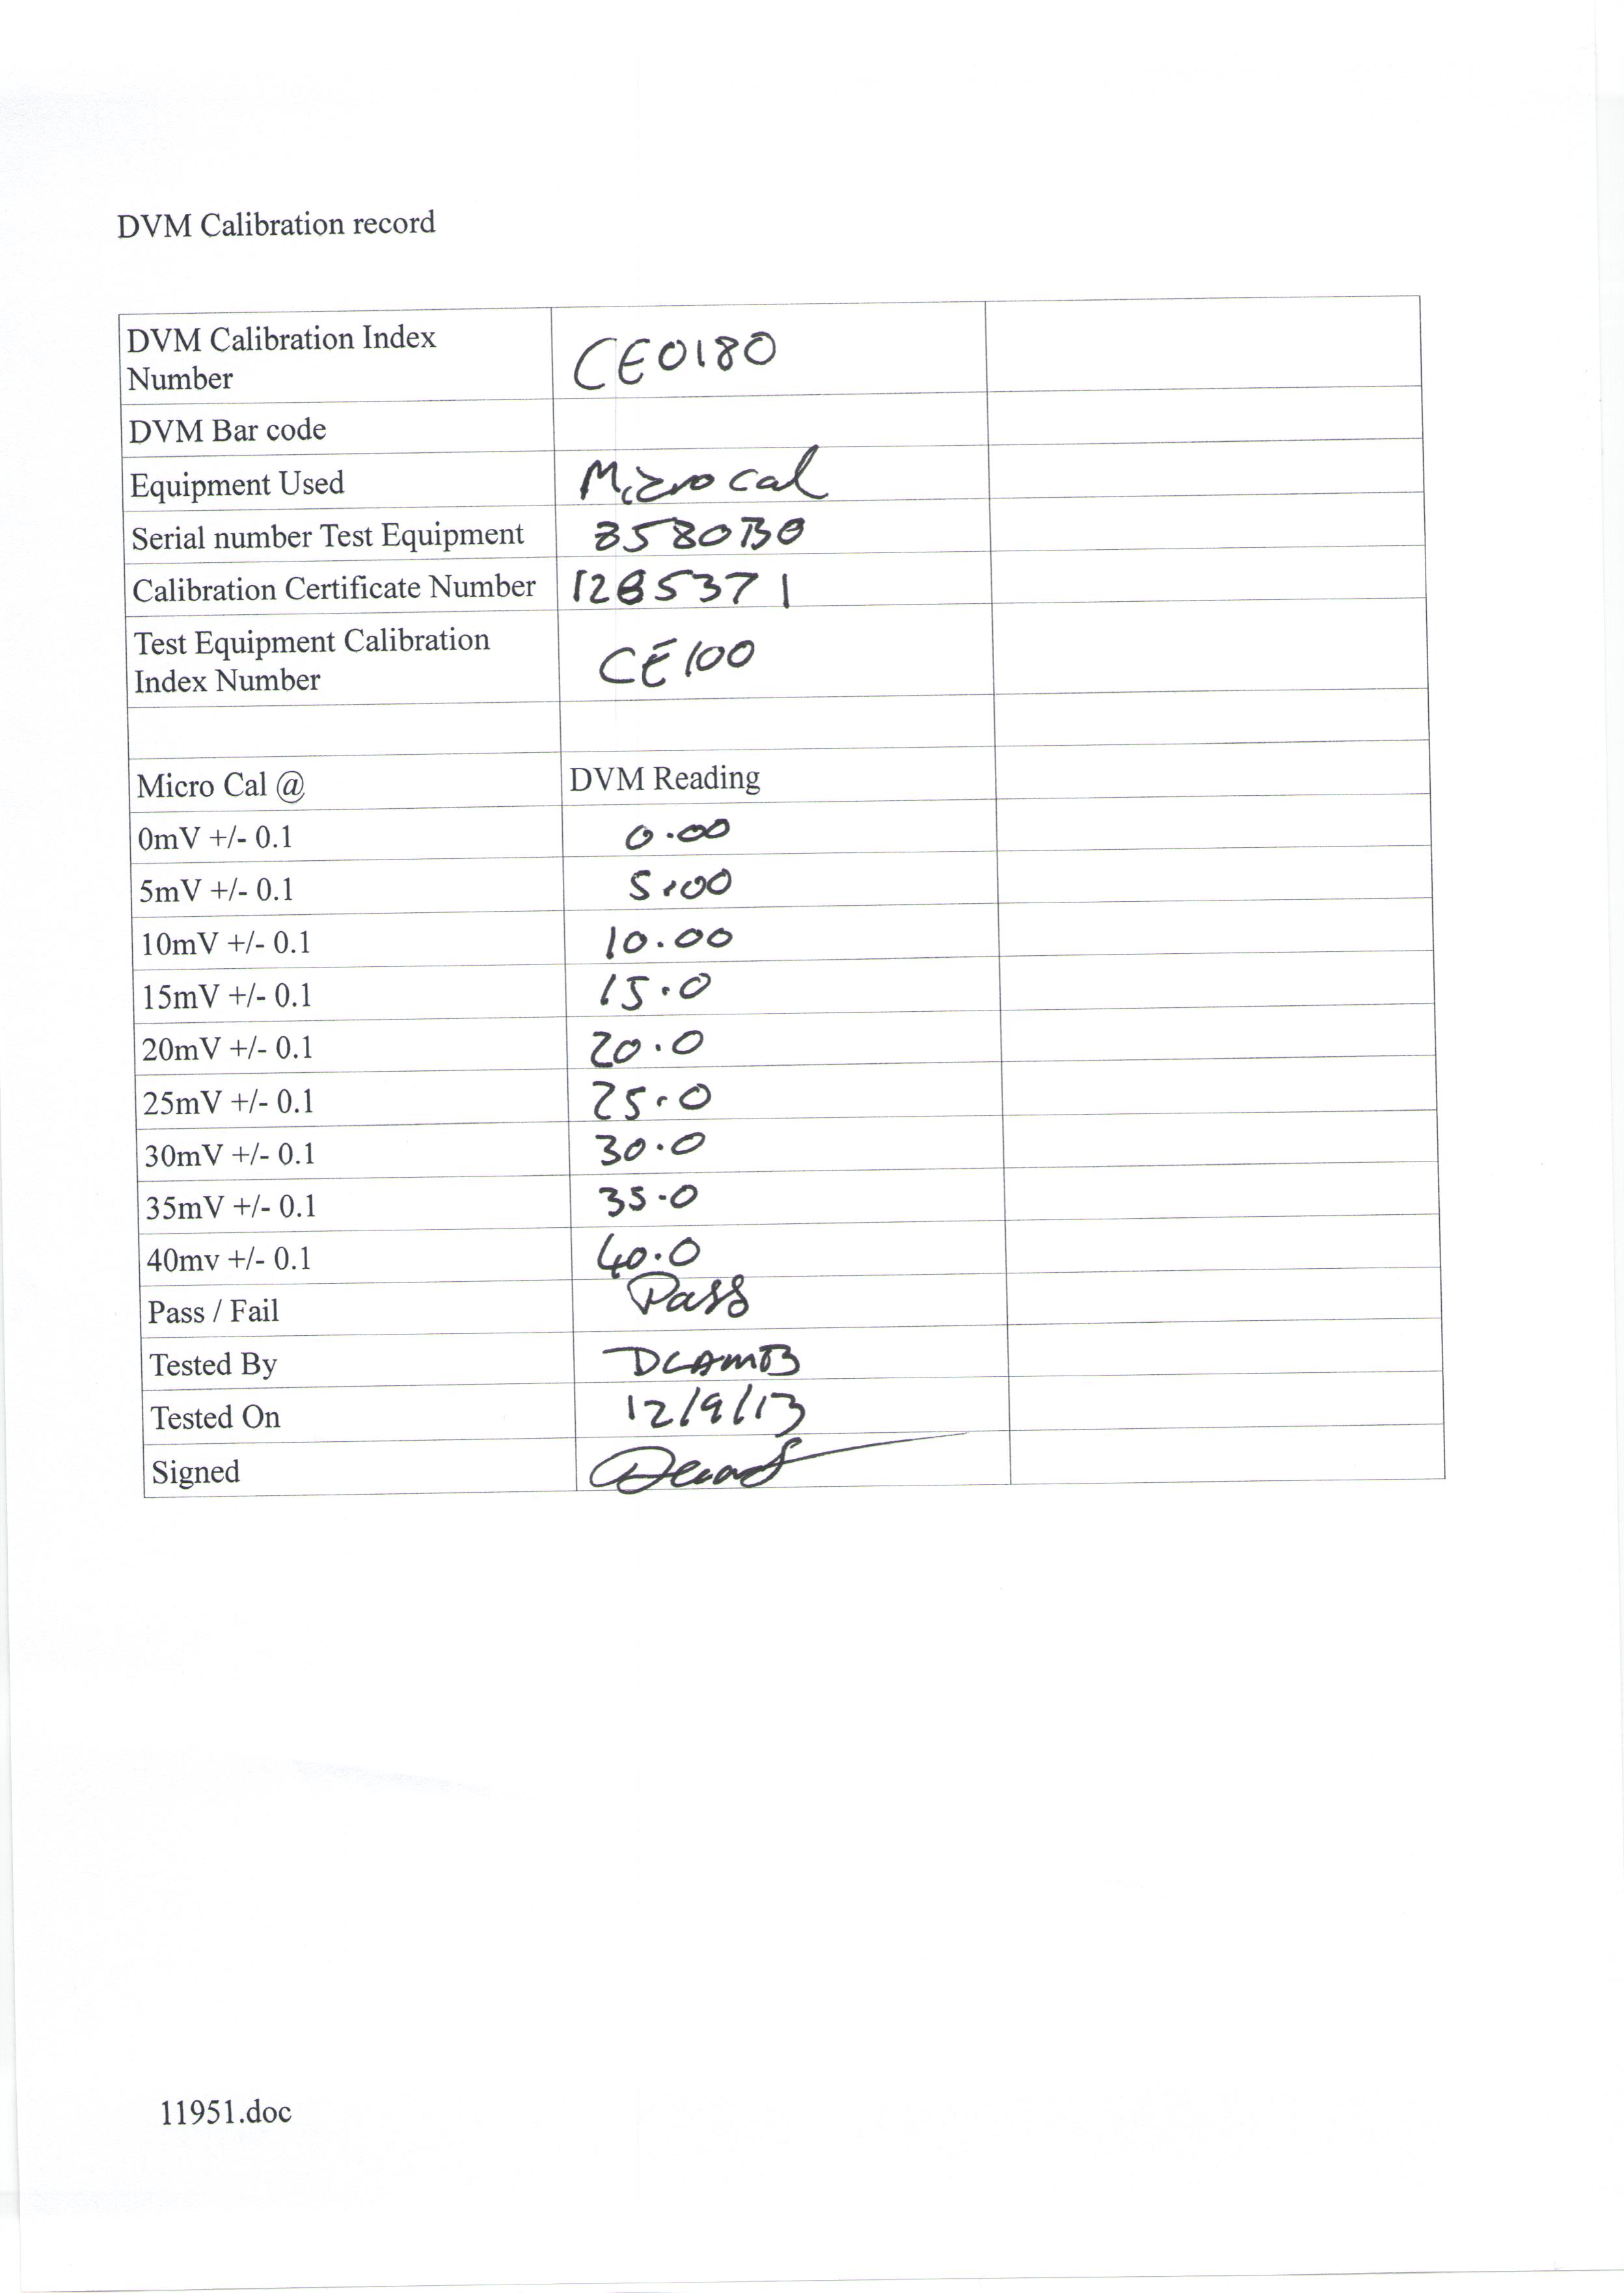 DVM Calibration record
DVM Calibration Index Number CE0180
DVM Bar code
Equipment Used Microcal
Serial number Test Equipment
Calibration Certificate Number 1285371
Test Equipment Calibration Index Number CE100
Micro Cal @ DVM Reading
0mV +/- 0.1 0.00
5mV +/- 0.1 5.00
10mV +/- 0.1 10.00
15mV +/- 0.1 15.0
20mV +/- 0.1 20.0
25mV +/- 0.1 25.0
30mV +/- 0.1 30.0
35mV +/- 0.1 35.0
40mv +/- 0.1 40.0
Pass / Fail Pass
Tested By DLAMB
Tested On 12/9/13
Signed
11951.doc